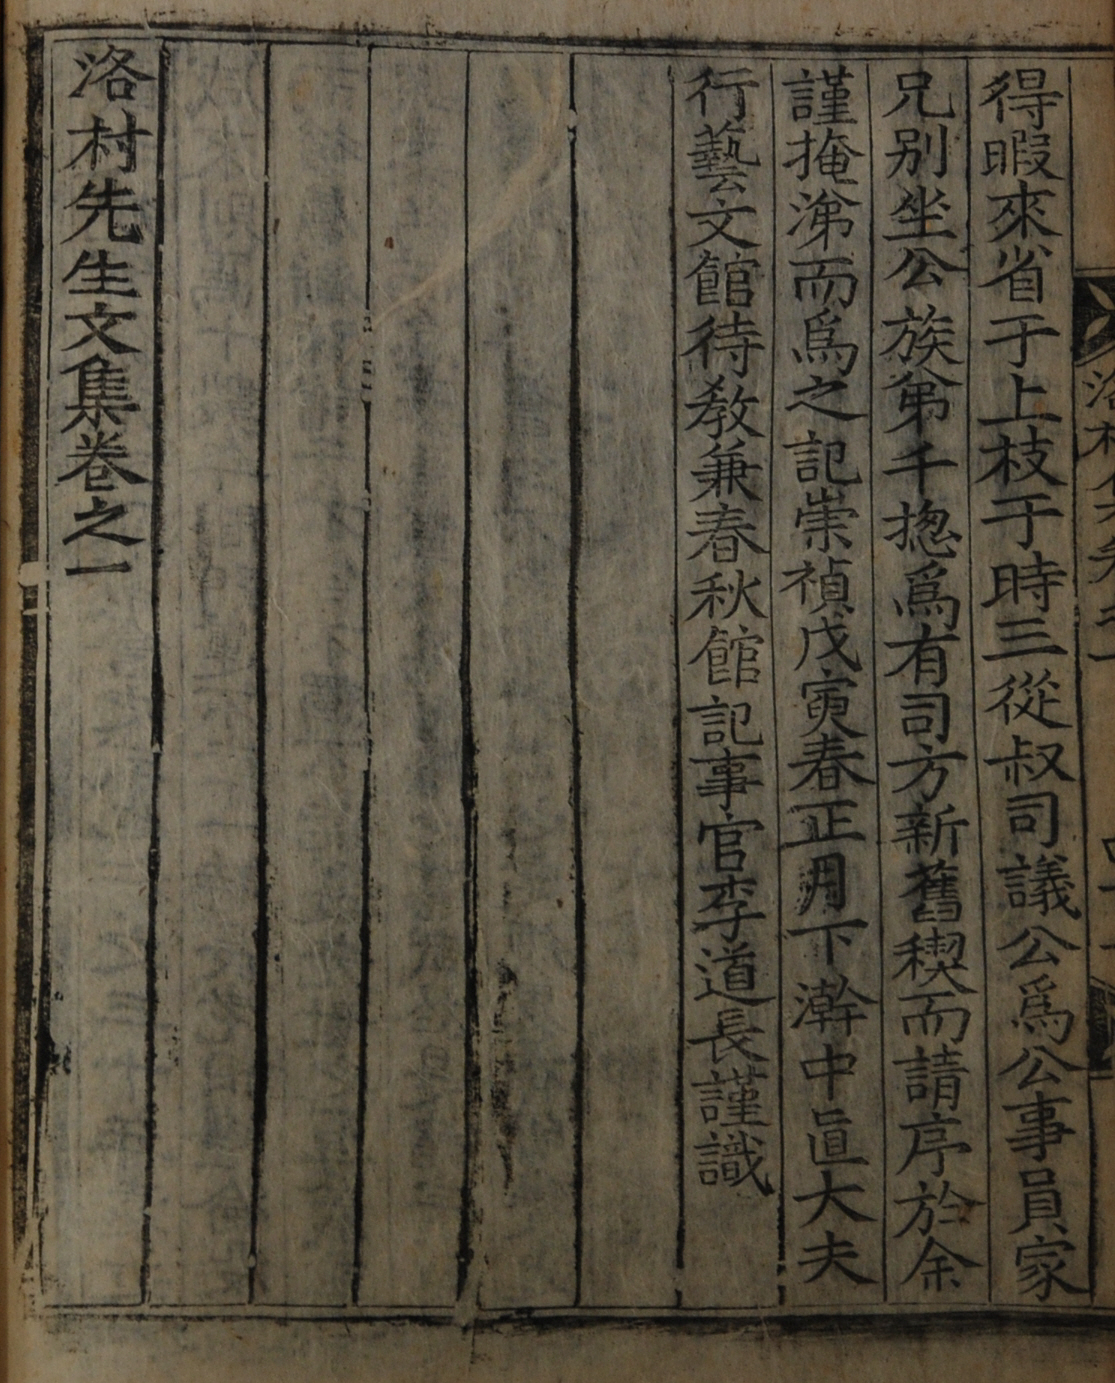 得暇來省于上枝于時三從叔司議公爲公事員家
兄别坐公族弟千摠爲有司方新舊稧而請序於余
謹掩涕而爲之記崇禎戊寅春正月下澣中直大夫
行藝文館待敎兼春秋館記事官李道長謹識
洛村先生文集卷之一